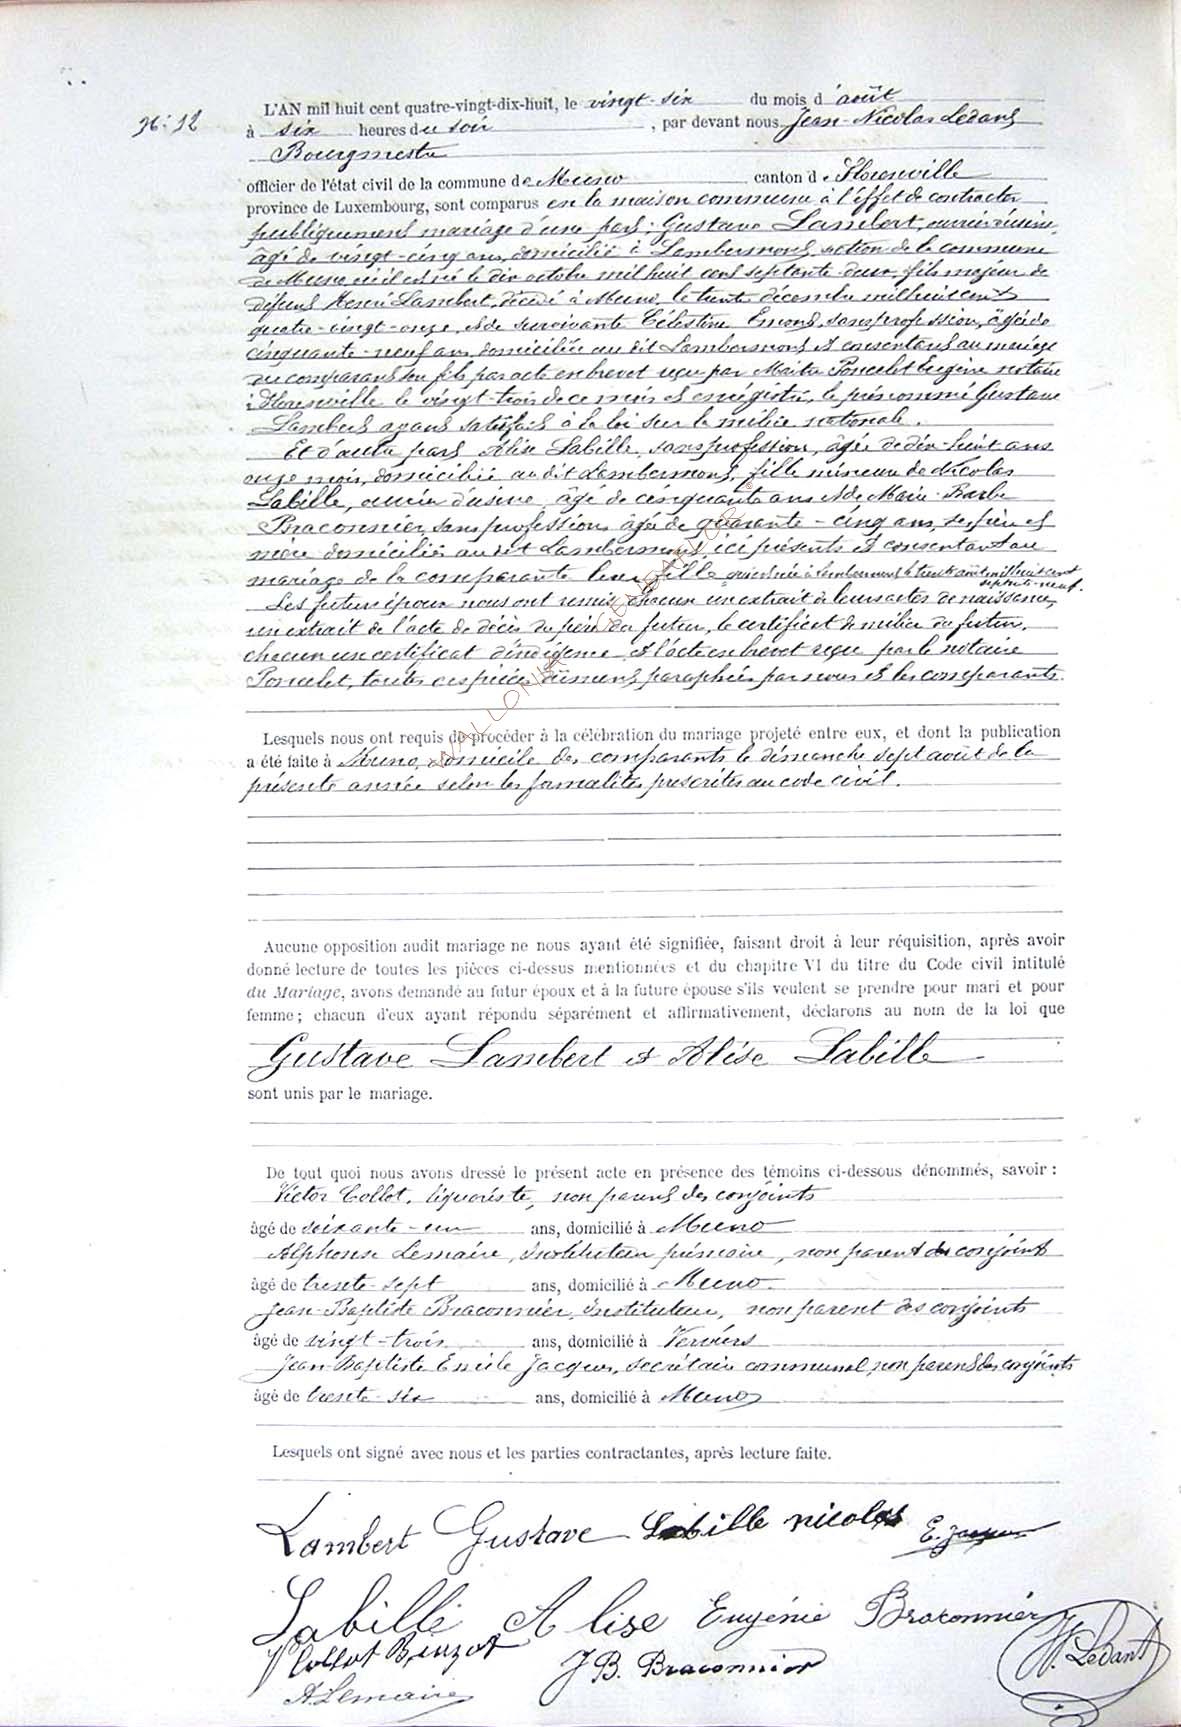 L'AN mil huit cent quatre-vingt-dix-huit, le vingt-six du mois d'août
à six heures du soir, par devant nous Jean-Nicolas Ledant
Bourgmestre
officier de l'état civil de la commune de Muno canton de Florenville
province de Luxembourg, sont comparus en la maison commune à l'effet de contracter
publiquement mariage d'une part: Gustave Lambert, ouvrier
âgé de vingt-cinq ans, domicilié à Lambermont, section de la commune
de Muno où il est né le dix octobre mil huit cent septante deux, fils majeur de
défunt Henri Lambert, décédé à Muno, le trente décembre mil huit cent
quatre-vingt-onze, et de survivante Célestine Emond, sans profession, âgée de
cinquante-neuf ans, domiciliée au dit Lambermont et consentant au mariage
du comparant son fils par acte en brevet reçu par Maître Poncelet Eugène notaire
à Florenville le vingt-trois de ce mois et enrégistré, le prénommé Gustave
Lambert ayant satisfait à la loi sur la milice nationale.
Et d'autre part Alise Labille, sans profession, âgée de dix-huit ans
onze mois, domiciliée au dit Lambermont, fille mineure de Nicolas
Labille, ouvrier d'usine, âgé de cinquante ans et de Marie-Barbe
Braconnier, sans profession, âgée de quarante-cinq ans, ses père et
mère domiciliés au dit Lambermont, ici présents et consentant au
mariage de la comparante leur fille qui est née à Lambermont le trente août mil huit cent
septante-neuf.
Les futurs époux nous ont remis chacun un extrait de leurs actes de naissance,
un extrait de l'acte de décès du père du futur, le certificat de milice du futur,
chacun un certificat d'indigence et l'acte en brevet reçu par le notaire
Poncelet, toutes ces pièces dûment paraphées par nous et les comparants.
Lesquels nous ont requis de procéder à la célébration du mariage projeté entre eux, et dont la publication
a été faite à Muno, domicile des comparants le dimanche sept août de la
présente année selon les formalités prescrites au code civil.
Aucune opposition audit mariage ne nous ayant été signifiée, faisant droit à leur réquisition, après avoir
donné lecture de toutes les pièces ci-dessus mentionnées et du chapitre VI du titre du Code civil intitulé
du Mariage, avons demandé au futur époux et à la future épouse s'ils veulent se prendre pour mari et pour
femme; chacun d'eux ayant répondu séparément et affirmativement, déclarons au nom de la loi que
Gustave Lambert et Alise Labille
sont unis par le mariage.
De tout quoi nous avons dressé le présent acte en présence des témoins ci-dessous dénommés, savoir :
Victor Collot, liquoriste, non parent des conjoints
âgé de soixante-un ans, domicilié à Muno
Alphonse Lemaire, Instituteur primaire, non parent des conjoints
âgé de trente-sept ans, domicilié à Muno.
Jean-Baptiste Braconnier, Instituteur, non parent des conjoints
âgé de vingt-trois ans, domicilié à Verviers
Jean-Baptiste Emile Jacques, secrétaire communal, non parent des conjoints
âgé de trente-six ans, domicilié à Muno
Lesquels ont signé avec nous et les parties contractantes, après lecture faite.
Lambert Gustave Labille nicolas E. Jacques
Labille Alise Eugénie Braconnier
V Collot J B. Braconnier N. Ledant
A Lemaire
WALLONIA GENEAFLOR ©